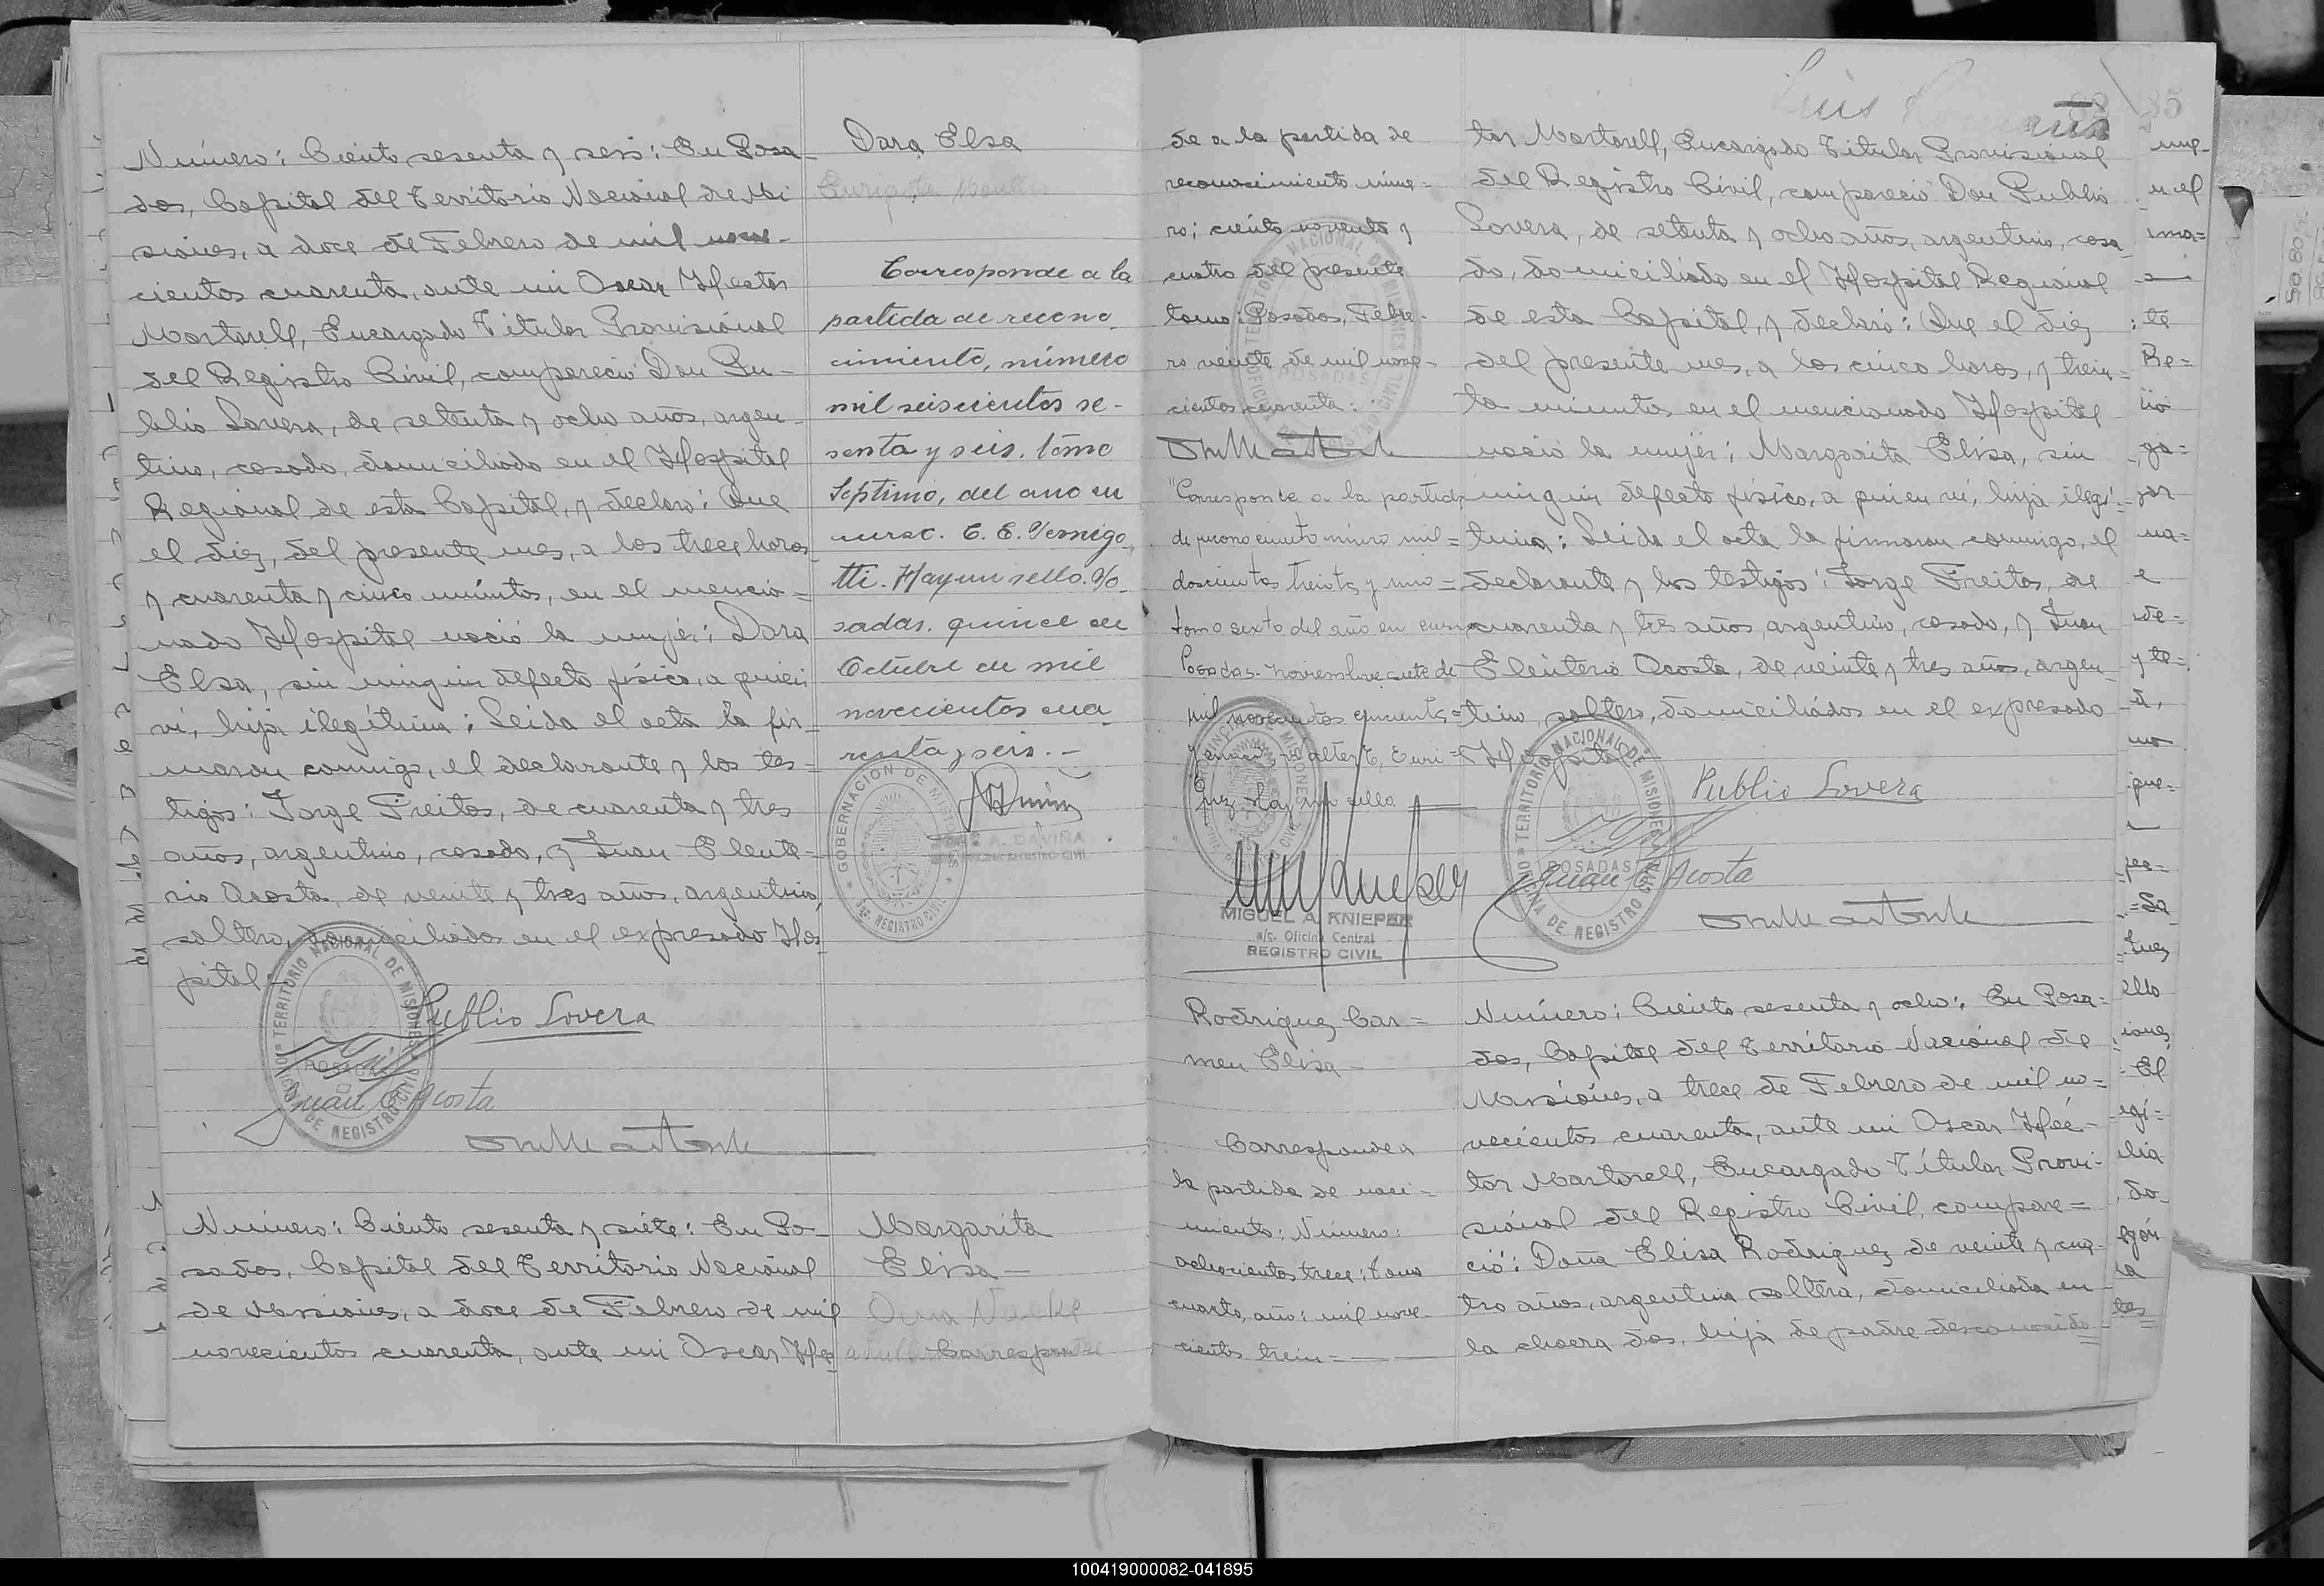 Número: Ciento sesenta y seis: En Posa-
das, Capital del Territorio Nacional de Mi
siones, a doce de Febrero de mil nove-
cientos cuarenta, ante mi Oscar Hector
Martorell, Encargado Titular Provisional
del Registro Civil, compareció Don Pu-
blio Lovera, de setenta y ocho años, argen-
tino, casado, domiciliado en el Hospital
Regional de esta Capital, y declaró: Que
el diez, del presente mes, a las trece horas
y cuarenta y cinco minutos, en el mencio=
nado Hospital nació la mujer: Dora
Elsa, sin ningun defecto físico, a quien
vi, hija ilegítima: Leida el acta la fir-
maron conmigo, el declarante y los tes-
tigos: Jorge Freitas, de cuarenta y tres
años, argentino, casado, y Juan Eleute-
rio Acosta, de veinte y tres años, argentino,
soltero, domiciliados en el expresado Hos
pital-
TERRITORIO NACIONAL DE MISIONES
POSADAS
OFICINA DE REGISTRO CIVIL
Publio Lovera
Juan E Acosta
Número: Ciento sesenta y siete: En Po-
sadas, Capital del Territorio Nacional
de Misiones, a doce de Febrero de mil
novecientos cuarenta, ante mi Oscar Hec
Dora Elsa
Corresponde a la
partida de recono
cimiento, número
mil seiscientos se-
senta y seis. tomo
Septimo, del año en
curso.
Hay un sello. Po
sadas. quince de
Octubre de mil
novecientos cua
renta y seis.-
GOBERNACION DE MISIONES
REGISTRO CIVIL
A. DAVIÑA
REGISTRO CIVIL
Margarita
Elisa-
Corresponde
Luis
85
de a la partida de
reconocimiento núme=
ro; ciento noventa y
cuatro del presente
tomo: Posadas, Febre-
ro veinte de mil nove-
cientos cuarenta:
TERRITORIO NACIONAL DE MISIONES
POSADAS
"Corresponde a la partida
de reconocimiento número mil=
doscientos treinta y uno=
tomo sexto del año en curso
Posadas- noviembre siete de
mil novecientos cincuenta=
Hay un sello
PROVINCIA DE MISIONES
MIGUEL A. KNIEPER
a/c. Oficina Central
REGISTRO CIVIL
Rodriguez Car=
men Elisa-
Corresponde a
la partida de naci=
miento: Número:
ochocientos trece: tomo
cuarto, año: mil nove-
cientos trein=
tor Martorell, Encargado Titular Provisional
del Registro Civil, compareció Don Publio
Lovera, de setenta y ocho años, argentino, casa
do, domiciliado en el Hospital Regional
de esta Capital, y declaró: Que el diez
del presente mes, a las cinco horas, y trein=
ta minutos en el mencionado Hospital
nació la mujer: Margarita Elisa, sin
ningun defecto físico, a quien vi, hija ilegí-
tima: Leida el acta la firmaron conmigo, el
declarante y los testigos: Jorge Freitas, de
cuarenta y tres años, argentino, casado, y Juan
Eleuterio Acosta, de veinte y tres años, argen-
tino, soltero, domiciliados en el expresado
Hospital
TERRITORIO NACIONAL DE MISIONES
POSADAS
OFICINA DE REGISTRO CIVIL
Publio Lovera
Juan E Acosta
Número: Ciento sesenta y ocho: En Posa=
das, Capital del Territorio Nacional de
Misiones, a trece de Febrero de mil no=
vecientos cuarenta, ante mi Oscar Héc-
tor Martorell, Encargado Títular Provi-
sional del Registro Civil, compare=
ció: Doña Elisa Rodriguez de veinte y cua-
tro años, argentina soltera, domiciliada en
la chacra dos, hija de padre desconocido
100419000082-041895